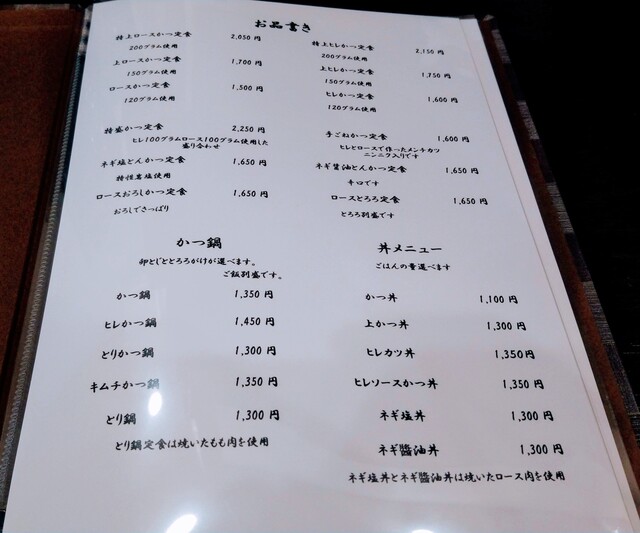 お品書き
特上ロースかつ定食 2,050 円
200グラム使用
上ロースかつ定食 1,700 円
150グラム使用
ロースかつ定食 1,500 円
120グラム使用
特上ヒレかつ定食 2,150 円
200グラム使用
上ヒレかつ定食 1,750 円
150グラム使用
ヒレかつ定食 1,600 円
120グラム使用
特盛かつ定食 2,250 円
ヒレ100グラムロース100グラム使用した
盛り合わせ
ネギ塩とんかつ定食 1,650 円
特性藻塩使用
ロースおろしかつ定食 1,650 円
おろしでさっぱり
手ごねかつ定食 1,600 円
ヒレとロースで作ったメンチカツ
ニンニク入りです
ネギ醤油とんかつ定食 1,650 円
辛口です
ローストろろ定食 1,650 円
とろろ別盛です
かつ鍋
卵とじととろろがけが選べます。
ご飯別盛です。
かつ鍋 1,350 円
ヒレかつ鍋 1,450 円
とりかつ鍋 1,300 円
キムチかつ鍋 1,350 円
とり鍋 1,300 円
とり鍋定食は焼いたもも肉を使用
丼メニュー
ごはんの量選べます
かつ丼 1,100 円
上かつ丼 1,300 円
ヒレカツ丼 1,350円
ヒレソースかつ丼 1,350 円
ネギ塩丼 1,300 円
ネギ醬油丼 1,300 円
ネギ塩丼とネギ醬油丼は焼いたロース肉を使用